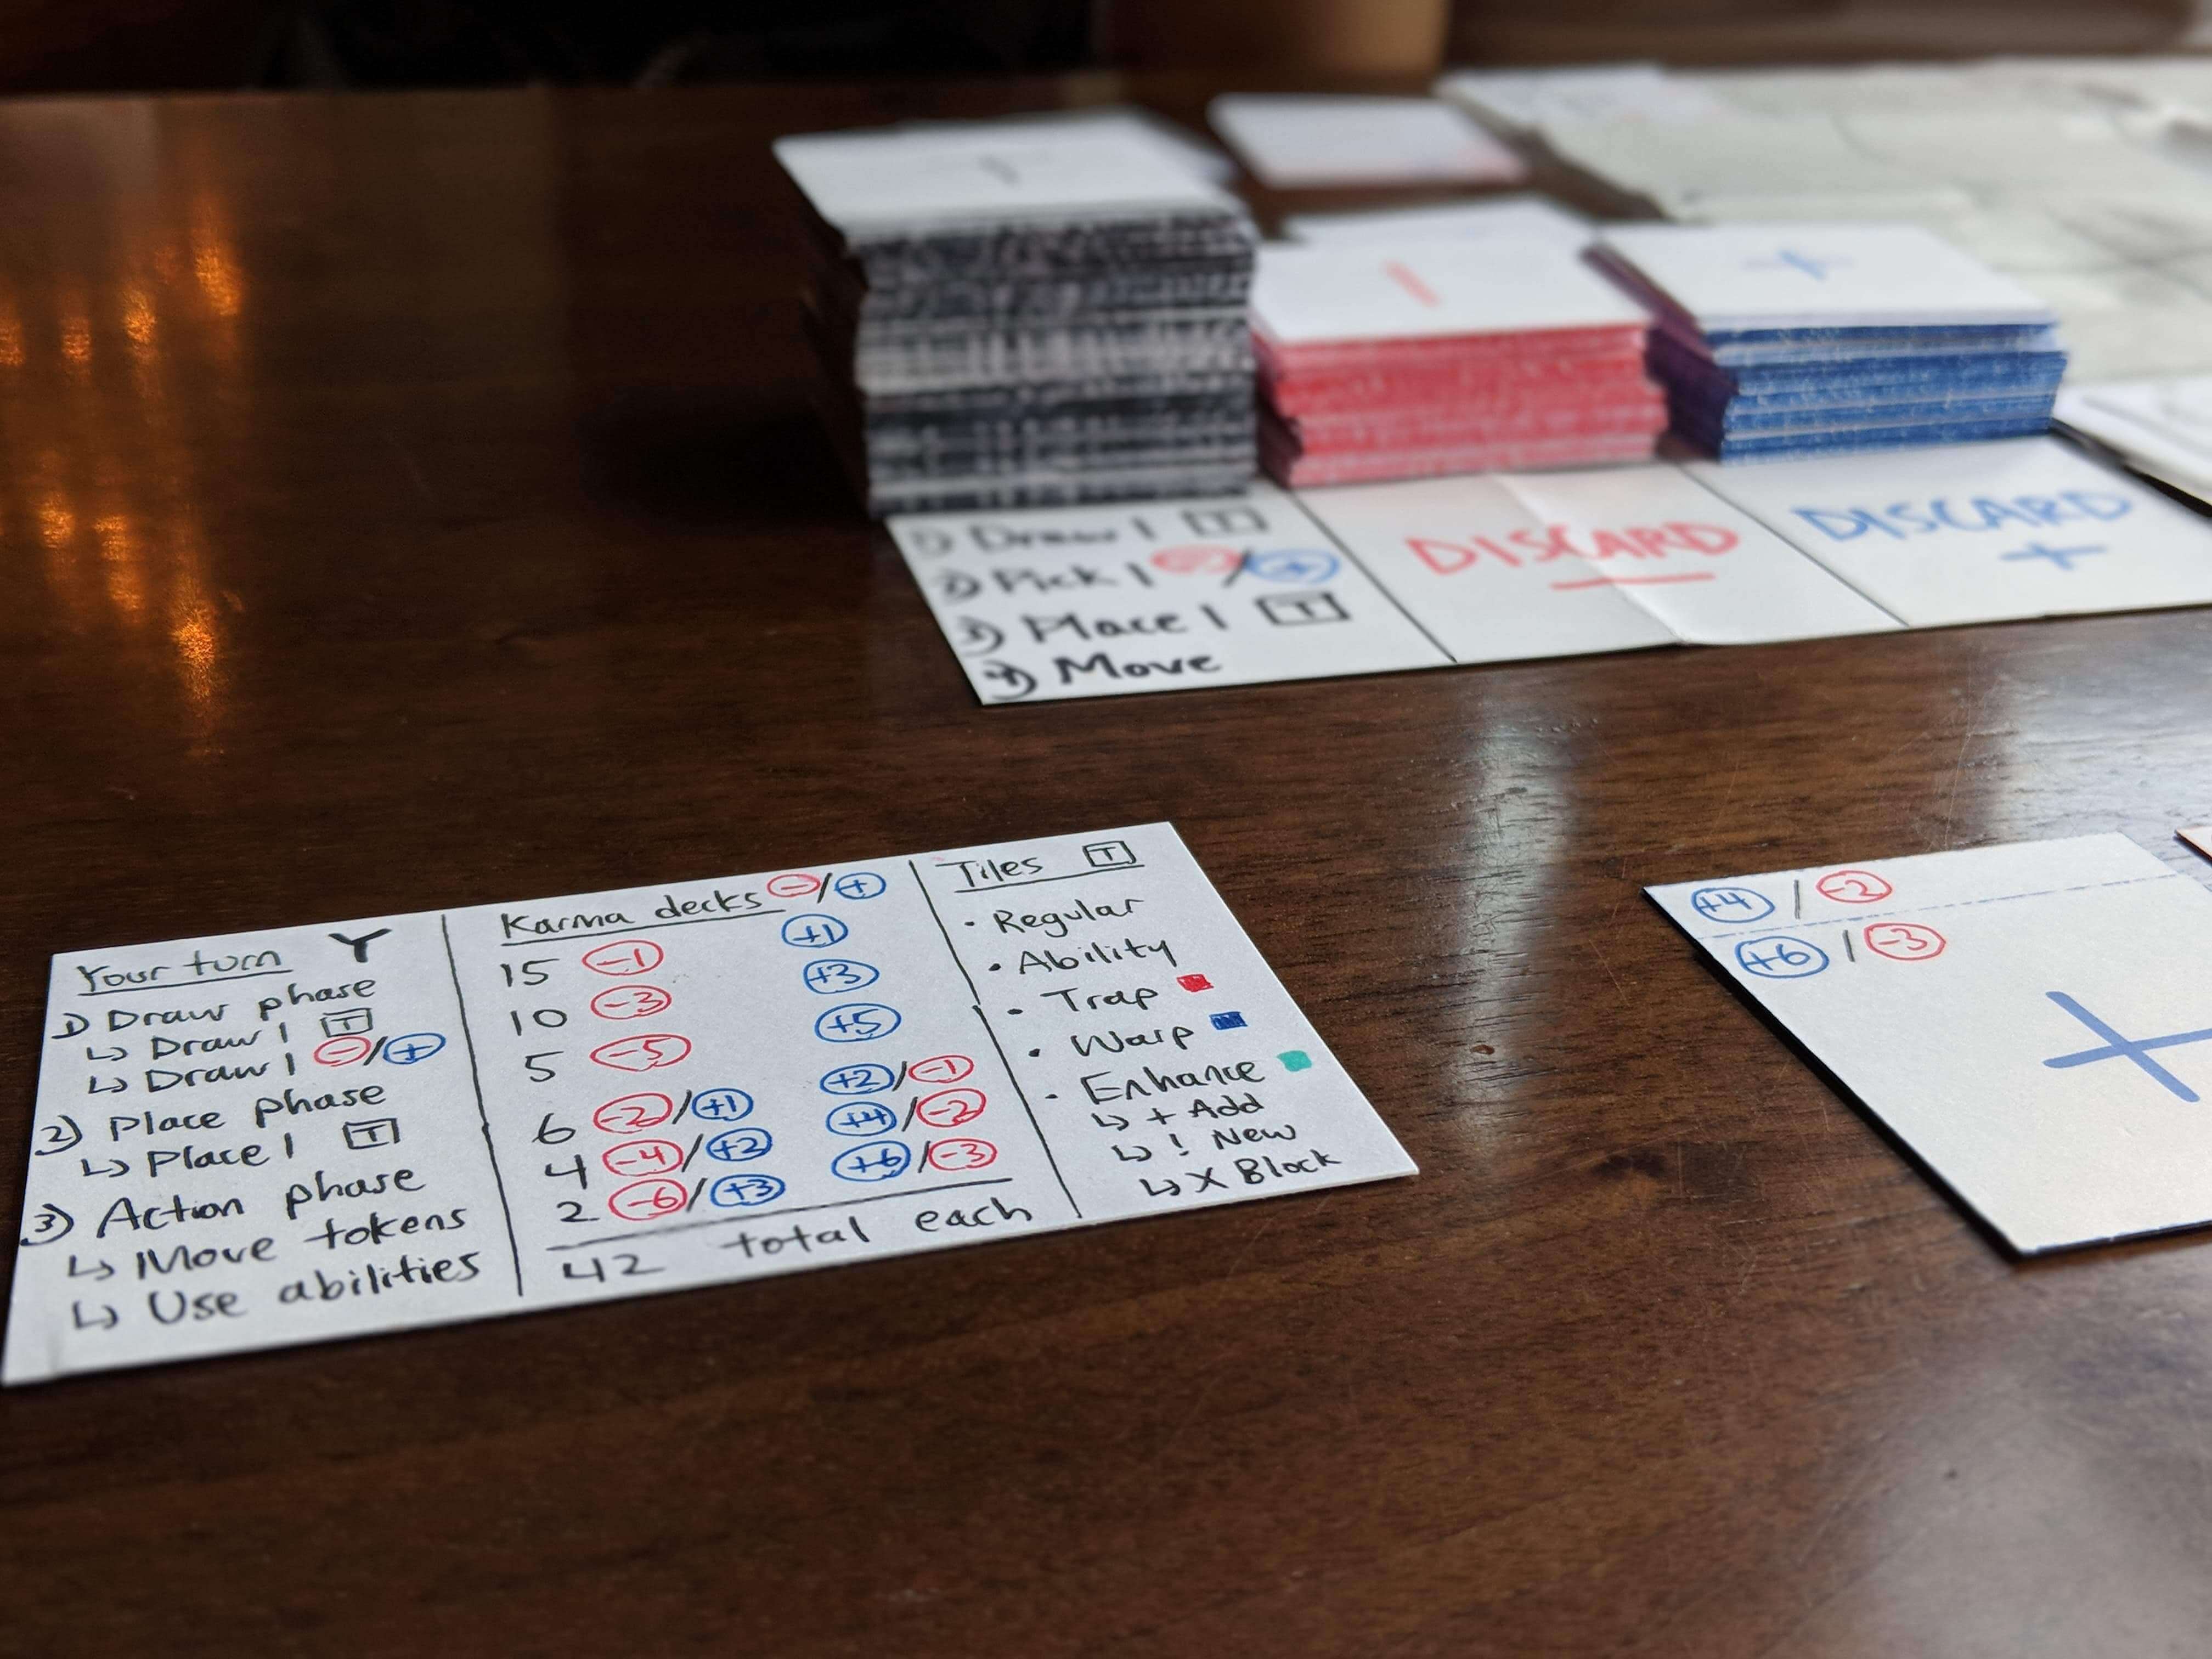 1) Draw 1 T
2) Pick 1 - / +
3) Place 1 T
4) Move
DISCARD
-
DISCARD
+
Your turn Y
1) Draw phase
↳ Draw 1 T
↳ Draw 1 - / +
2) Place phase
↳ Place 1 T
3) Action phase
↳ Move tokens
↳ Use abilities
Karma decks - / +
15 -1 +1
10 -3 +3
5 -5 +5
6 -2 / +1 +2 / -1
4 -4 / +2 +4 / -2
2 -6 / +3 +6 / -3
42 total each
Tiles T
• Regular
• Ability
• Trap
• Warp
• Enhance
↳ + Add
↳ ! New
↳ X Block
+4 / -2
+6 / -3
+